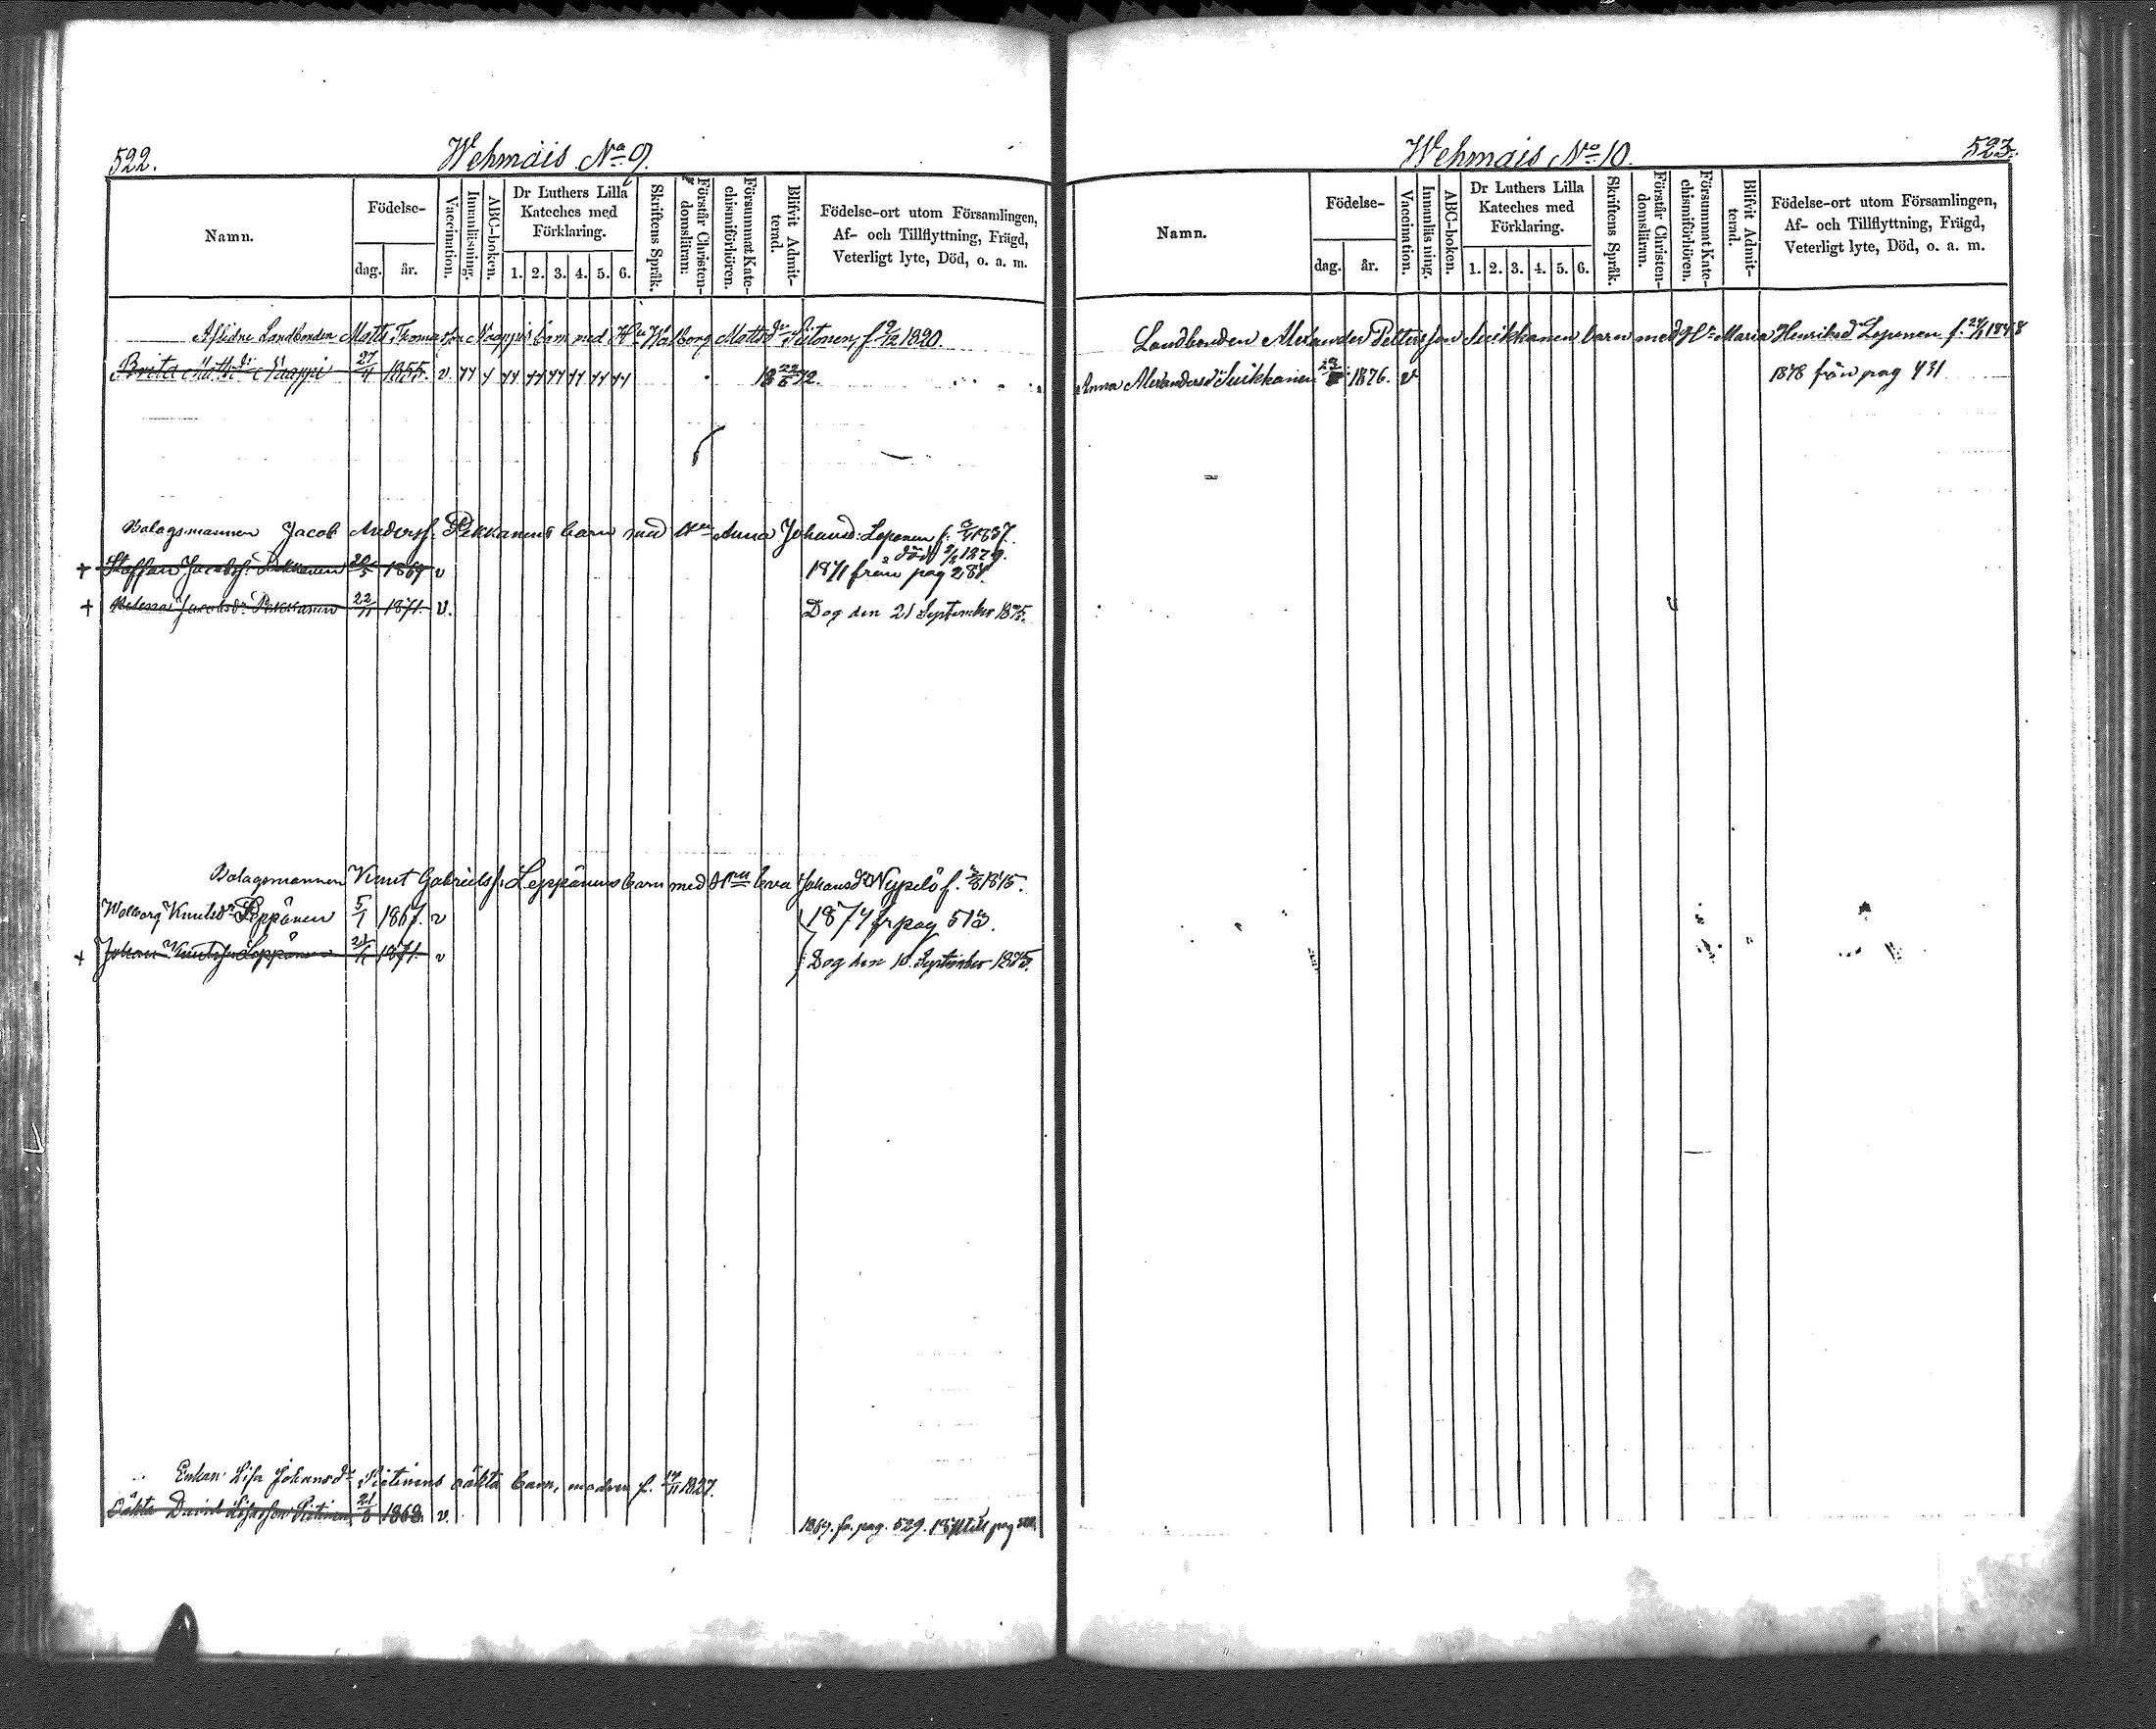 522.
Wehmais No 9.
Namn.
Födelse-
dag. år.
Vaccination.
Innanläsning.
ABC-boken.
Dr Luthers Lilla
Kateches med
Förklaring.
1. 2. 3. 4. 5. 6.
Skriftens Språk.
Förstår Christen-
domsläran.
Försummat Kate-
chismiförhören.
Blifvit Admit-
terad.
Födelse-ort utom Församlingen,
Af- och Tillflyttning, Frägd,
Veterligt lyte, Död, o. a. m.
Aflidne Landbonden Matts Thomasson Naappis barn med Hu Walborg Mattsdr Piitonen f 9/12 1820.
Brita Mattsdr Naappi 27/4 1855. v.
Bolagsmannen Jacob Andersf. Pekkanens barn med Hu Anna Johansd: Loponen
Staffan Jacobsf. Pekkanen 1869 v 1871 från pag 281.
Helena Jacobsdr Pekkanen 22/11 1871. v. Dog den 21 September 1875.
Bolagsmannen Knut Gabrielsf. Leppänens barn med Hu Johansdr
Walborg Knutsdr Leppänen 5/1 1867. v 1874 fr pag 513.
Johan Knutsson Leppänen 1871. v Dog den 10 September 1875.
Enkan Lisa Johansdr Pietinens oäkta barn, modren f. 1827.
Oäkta David Pietinen 21/8 1868. v. 1869. fr. pag. 529. till pag
523.
Wehmais No 10.
Namn.
Födelse-
dag. år.
Vaccination.
Innanläs ning.
ABC-boken.
Dr Luthers Lilla
Kateches med
Förklaring.
1. 2. 3. 4. 5. 6.
Skriftens Språk.
Förstår Christen-
domslärann.
Försummat Kate-
chismiförhören.
Blifvit Admit-
terad.
Födelse-ort utom Församlingen,
Af- och Tillflyttning, Frägd,
Veterligt lyte, Död, o. a. m.
Landbonden Alexander Pettersson Suikkanen barn med Hu Maria Henriksd Loponen f.
Anna Alexandersdr Suikkanen 1876. v 1878 från pag 431